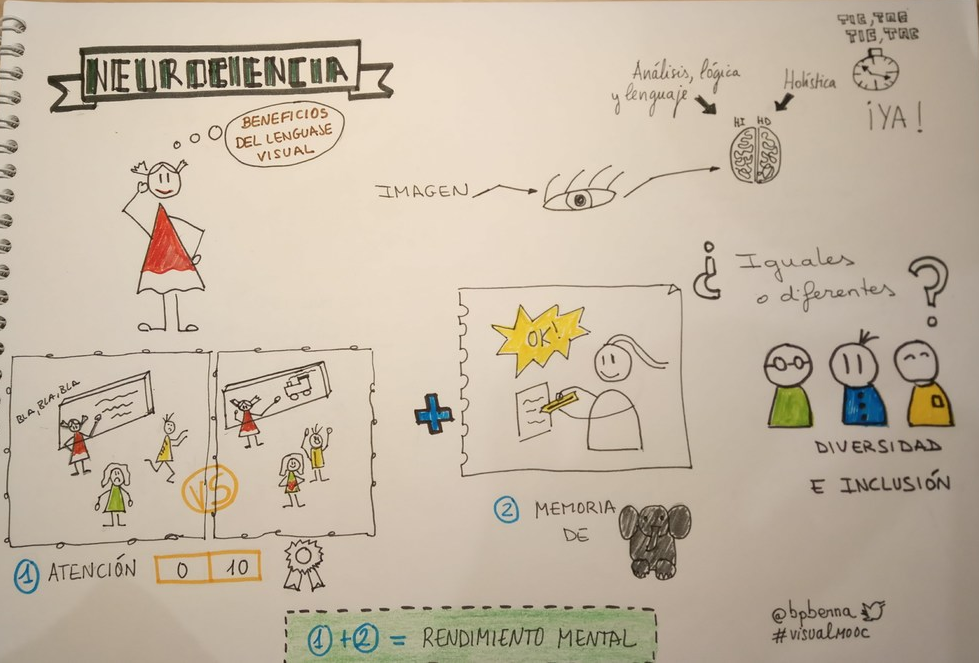 NEUROCIENCIA
BENEFICIOS
DEL LENGUAJE
VISUAL
TIC, TAC
TIC, TAC
¡YA!
Análisis, lógica
y lenguaje
Holística
HI HD
IMAGEN
¿Iguales
o diferentes?
BLA, BLA, BLA
VS
OK!
DIVERSIDAD
E INCLUSIÓN
① ATENCIÓN 0 10
② MEMORIA
DE
①+② = RENDIMIENTO MENTAL
@bpbenna
#visualMOOC